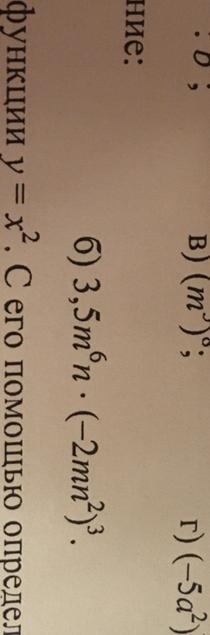 в) (m⁵)⁸; г) (−5a²)
ние:
б) 3,5m⁶n · (−2mn²)³.
функции y = x². С его помощью